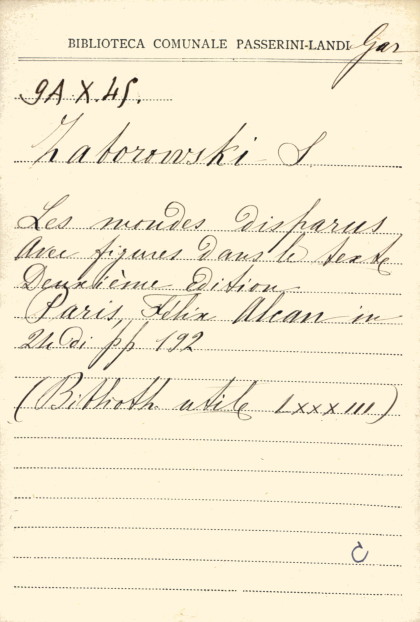 BIBLIOTECA COMUNALE PASSERINI-LANDI Gar
9A X.45.
Zaborowski S
Les mondes disparus
Avec figures dans le texte
Deuxième edition
Paris Félix Alcan in
24 di pp 192
(Biblioth. utile LXXXIII)
C